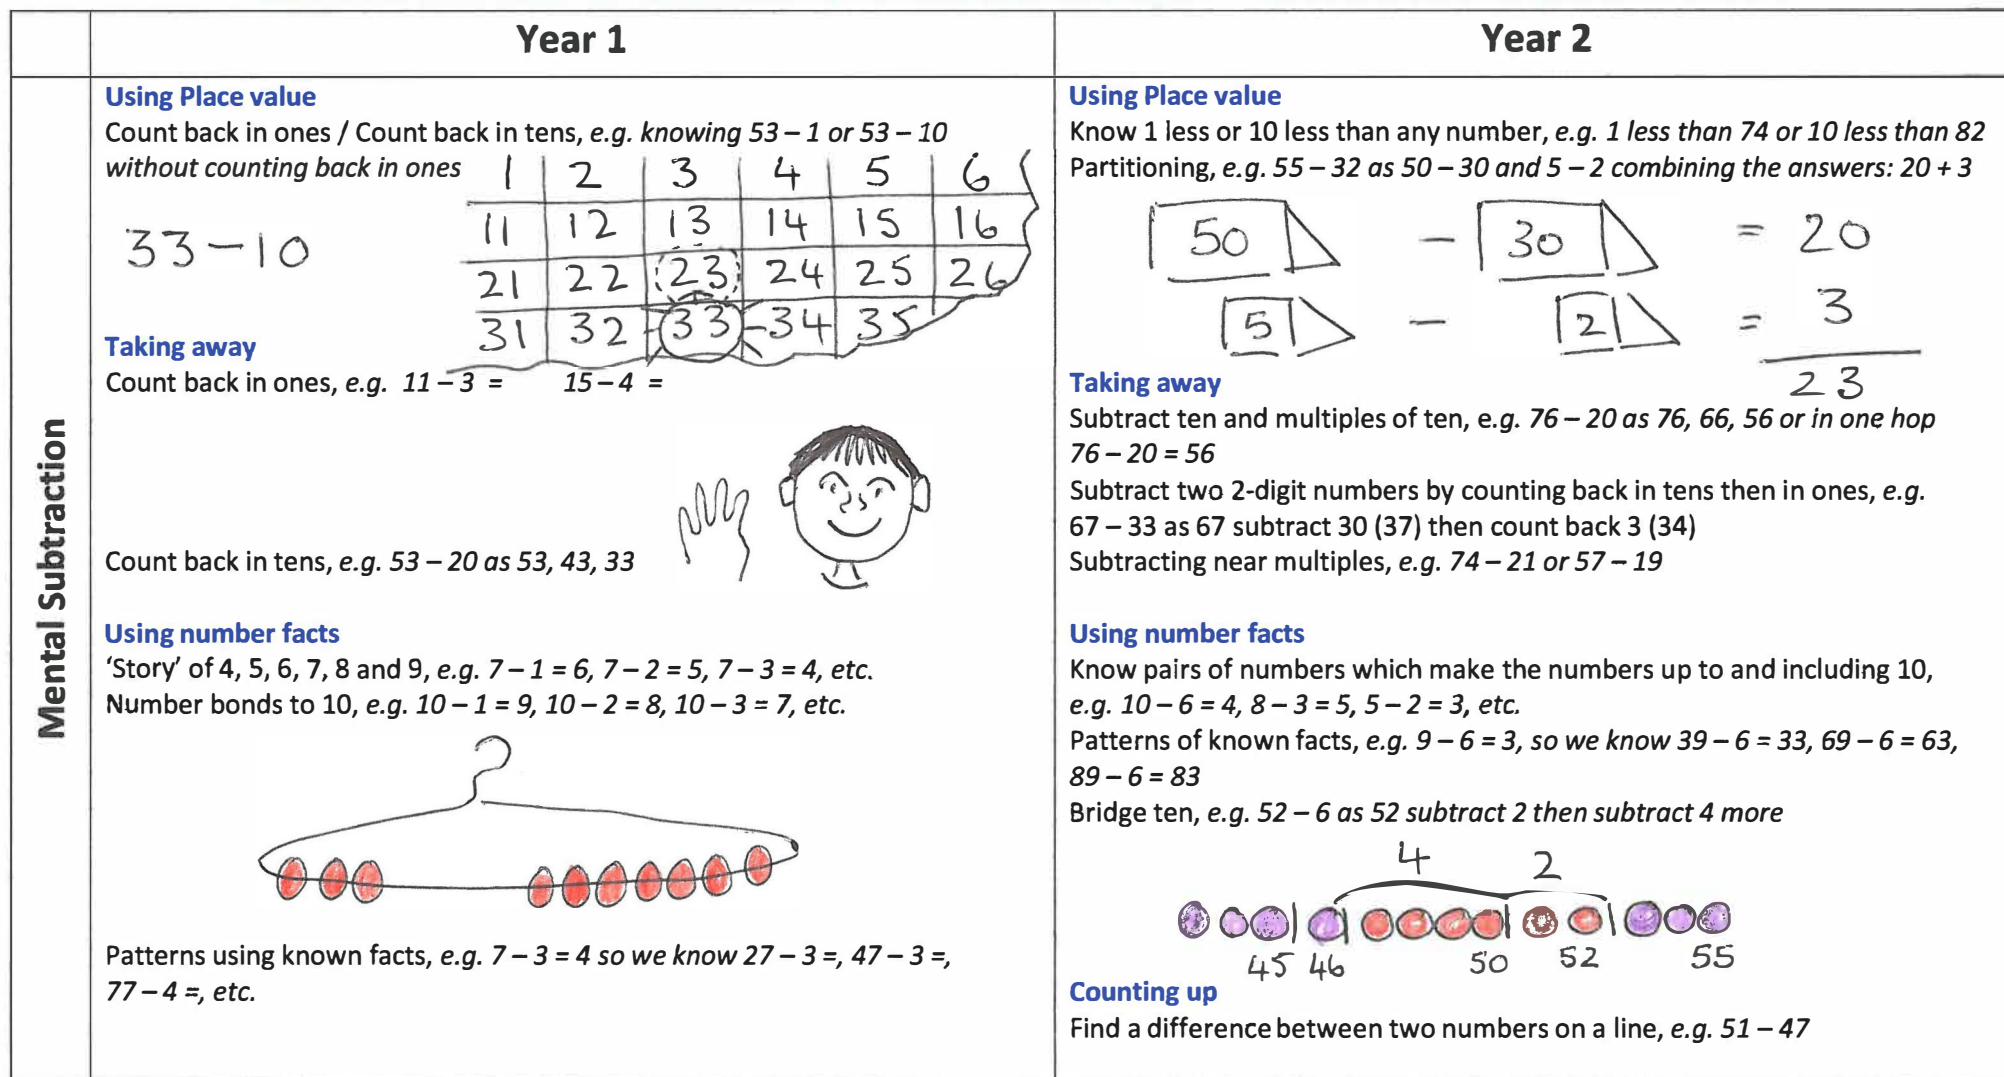 Year 1
Year 2
Mental Subtraction
Using Place value
Count back in ones / Count back in tens, e.g. knowing 53 – 1 or 53 – 10
without counting back in ones
1 2 3 4 5 6
11 12 13 14 15 16
21 22 23 24 25 26
31 32 33 34 35
33 – 10
Taking away
Count back in ones, e.g. 11 – 3 = 15 – 4 =
Count back in tens, e.g. 53 – 20 as 53, 43, 33
Using number facts
‘Story’ of 4, 5, 6, 7, 8 and 9, e.g. 7 – 1 = 6, 7 – 2 = 5, 7 – 3 = 4, etc.
Number bonds to 10, e.g. 10 – 1 = 9, 10 – 2 = 8, 10 – 3 = 7, etc.
Patterns using known facts, e.g. 7 – 3 = 4 so we know 27 – 3 =, 47 – 3 =,
77 – 4 =, etc.
Using Place value
Know 1 less or 10 less than any number, e.g. 1 less than 74 or 10 less than 82
Partitioning, e.g. 55 – 32 as 50 – 30 and 5 – 2 combining the answers: 20 + 3
50 – 30 = 20
5 – 2 = 3
23
Taking away
Subtract ten and multiples of ten, e.g. 76 – 20 as 76, 66, 56 or in one hop
76 – 20 = 56
Subtract two 2-digit numbers by counting back in tens then in ones, e.g.
67 – 33 as 67 subtract 30 (37) then count back 3 (34)
Subtracting near multiples, e.g. 74 – 21 or 57 – 19
Using number facts
Know pairs of numbers which make the numbers up to and including 10,
e.g. 10 – 6 = 4, 8 – 3 = 5, 5 – 2 = 3, etc.
Patterns of known facts, e.g. 9 – 6 = 3, so we know 39 – 6 = 33, 69 – 6 = 63,
89 – 6 = 83
Bridge ten, e.g. 52 – 6 as 52 subtract 2 then subtract 4 more
4 2
45 46 50 52 55
Counting up
Find a difference between two numbers on a line, e.g. 51 – 47